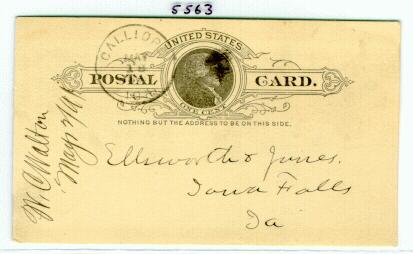 5563
CALLIOPE
UNITED STATES
POSTAL CARD.
ONE CENT
NOTHING BUT THE ADDRESS TO BE ON THIS SIDE.
W. C. Walton
May
Ellsworth & Jones.
Iowa Falls
Ia